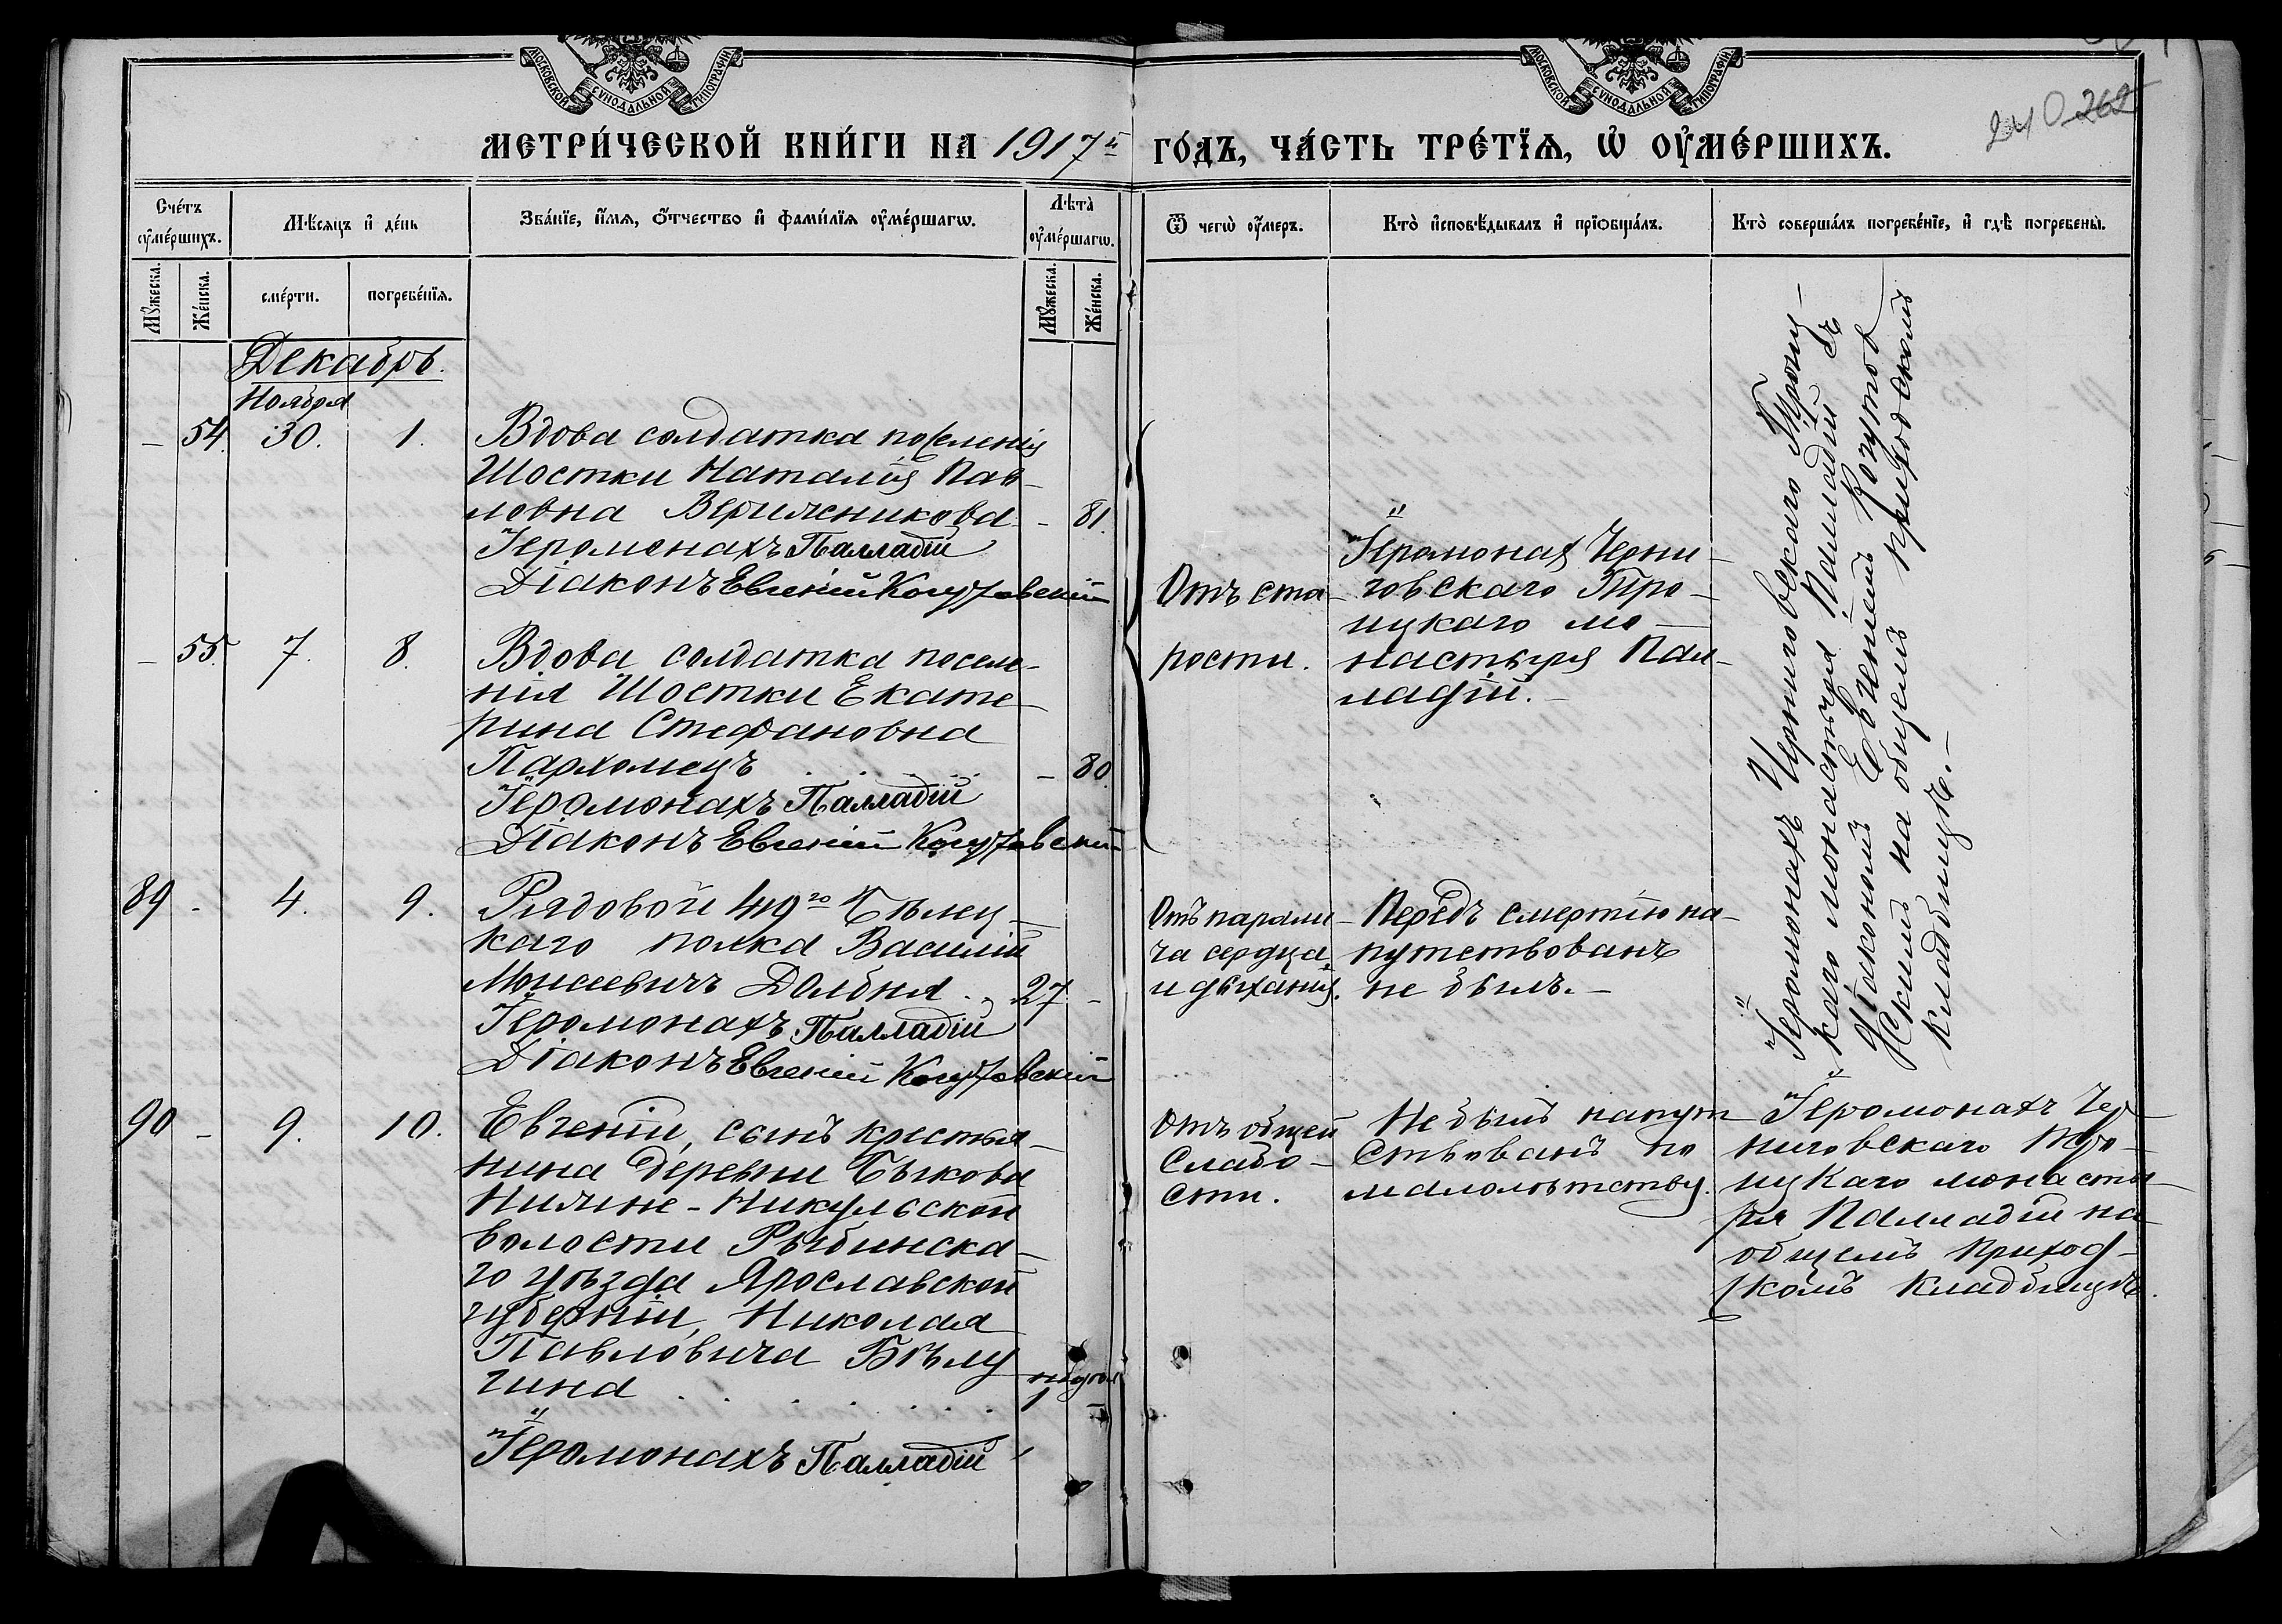 МОСКОВСКОЙ СѴНОДАЛЬНОЙ ТИПОГРАФІИ
МОСКОВСКОЙ СѴНОДАЛЬНОЙ ТИПОГРАФІИ
240 262
МЕТРИ́ЧЕСКОЙ КНИ́ГИ НА 1917й ГО́ДЪ, ЧА́СТЬ ТРЕ́ТЇѦ, Ѡ҆ ОУ҆МЕ́РШИХЪ.
Сче́тъ оу҆ме́ршихъ.
Мѣ́сѧцъ и҆ де́нь
Зва́нїе, и҆́мѧ, ѻ҆́тчество и҆ фами́лїѧ оу҆ме́ршагѡ.
Лѣ́та оу҆ме́ршагѡ.
Ѿ чегѡ̀ оу҆́меръ.
Кто̀ и҆сповѣ́дывалъ и҆ прїѡбща́лъ.
Кто̀ соверша́лъ погребе́нїе, и҆ гдѣ̀ погребены̀.
Мꙋ́жеска.
Же́нска.
сме́рти.
погребе́нїѧ.
Мꙋ́жеска.
Же́нска.
Декабрь.
Ноября
– 54. 30. 1. Вдова солдатка поселенія
Шостки Наталія Пав-
ловна - 81.
Іеромонахъ Палладій
Діаконъ Евгеній
Отъ ста-
рости.
Іеромонах Черни-
говскаго Трои-
цкаго мо-
настыря Пал-
ладій.-
Іеромонахъ Черниговскаго Троиц-
каго монастыря Палладій съ
Діакономъ Евгеніемъ
скимъ на общемъ приходскомъ
кладбищѣ.-
– 55. 7. 8. Вдова солдатка поселе-
нія Шостки Екате-
рина Стефановна
Пархомецъ - 80.
Іеромонахъ Палладій
Діаконъ Евгеній
89 - 4. 9. Рядовой 419го
каго полка Василій
Моисеевичъ Долбня . 27 -
Іеромонахъ Палладій
Діаконъ Евгеній
Отъ парали-
ча сердца
и дыханія.
Передъ смертію на-
путствованъ
не былъ.-
90 - 9. 10. Евгеній, сынъ крестья-
нина деревни Быкова
Никульской
волости Рыбинска-
го уѣзда Ярославской
губерніи, Николая
Павловича Бѣлу
гина 1
Іеромонахъ Палладій
Отъ общей
слабо-
сти.
Не былъ напут-
ствованъ по
малолѣтству.
Іеромонахъ Чер-
ниговскаго Трои-
цкаго монасты-
ря Палладій на
общемъ приход-
скомъ кладбищѣ.